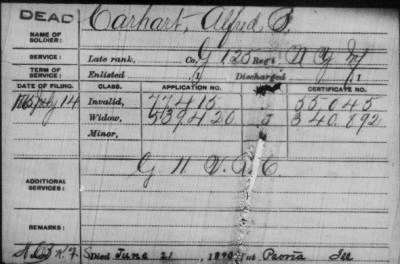 DEAD Carhart, Alfred B.
NAME OF SOLDIER:
SERVICE: Late rank, Co. G 125 Reg't N Y Inf
TERM OF SERVICE: Enlisted 1 Discharged 1
DATE OF FILING. CLASS. APPLICATION NO. CERTIFICATE NO.
July 14 Invalid, 77.415 55.045
Widow, 539420 340.892
Minor,
ADDITIONAL SERVICES: G 11 V.R.C.
REMARKS:
Died June 21, 1890, at Peoria Ill